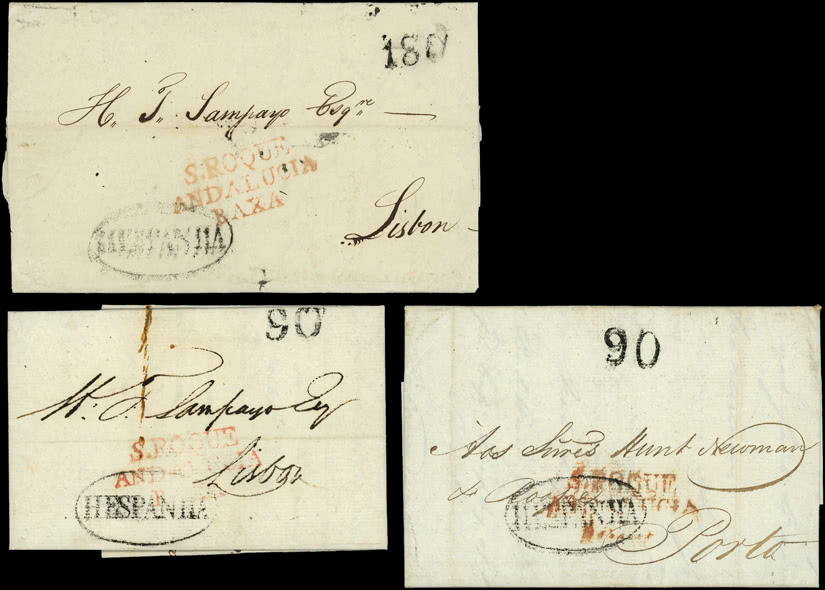 180
H. T. Sampayo Esqre
S. ROQUE
ANDALUCIA
BAXA
HESPANHA
Lisbon
90
H. T. Sampayo Esq
S. ROQUE
ANDALUCIA
Lisbon
HESPANHA
90
Aos Snres Hunt Newman
& Roope
S. ROQUE
ANDALUCIA
HESPANHA
Porto